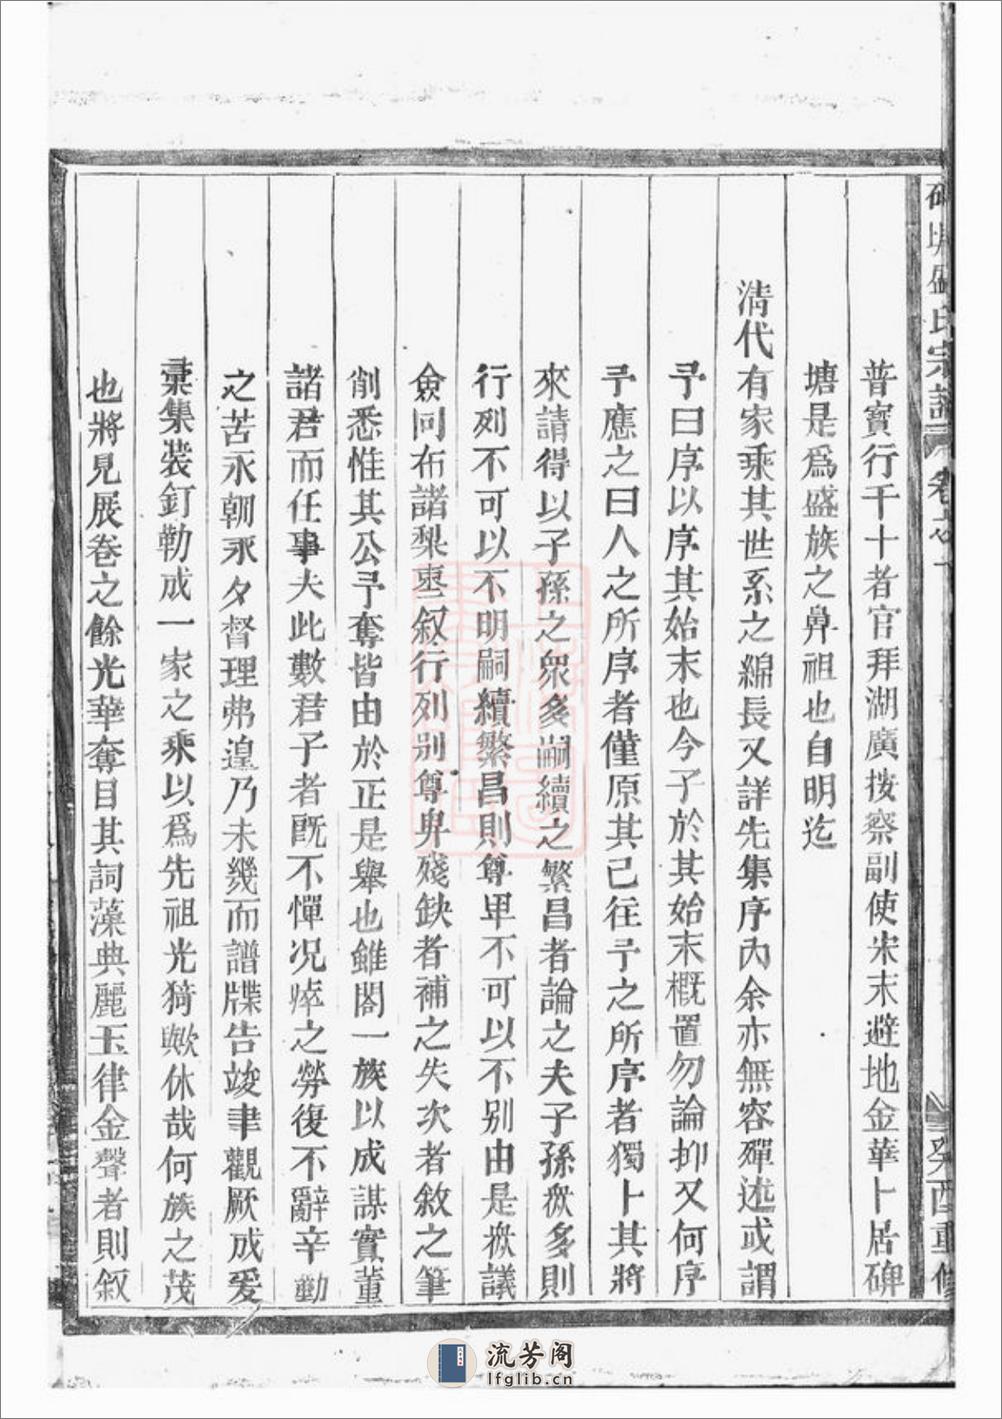 碑塘盛氏宗譜 卷之一 癸酉重修
普寶行千十者官拜湖廣按察副使宋末避地金華卜居碑
塘是爲盛族之鼻祖也自明迄
清代有家乘其世系之綿長又詳先集序內余亦無容殫述或謂
予曰序以序其始末也今子於其始末槪置勿論抑又何序
予應之曰人之所序者僅原其已往予之所序者獨卜其將
來請得以子孫之衆多嗣續之繁昌者論之夫子孫衆多則
行列不可以不明嗣續繁昌則尊卑不可以不别由是衆議
僉同布諸梨棗叙行列别尊卑殘缺者補之失次者敘之筆
削悉惟其公予奪皆由於正是舉也雖閤一族以成謀實董
諸君而任事夫此數君子者旣不憚況瘁之勞復不辭辛勤
之苦永朝永夕督理弗遑乃未幾而譜牒告竣聿觀厥成爰
彙集裝釘勒成一家之乘以爲先祖光猗歟休哉何族之茂
也將見展卷之餘光華奪目其詞藻典麗玉律金聲者則叙
流芳阁
lfglib.cn